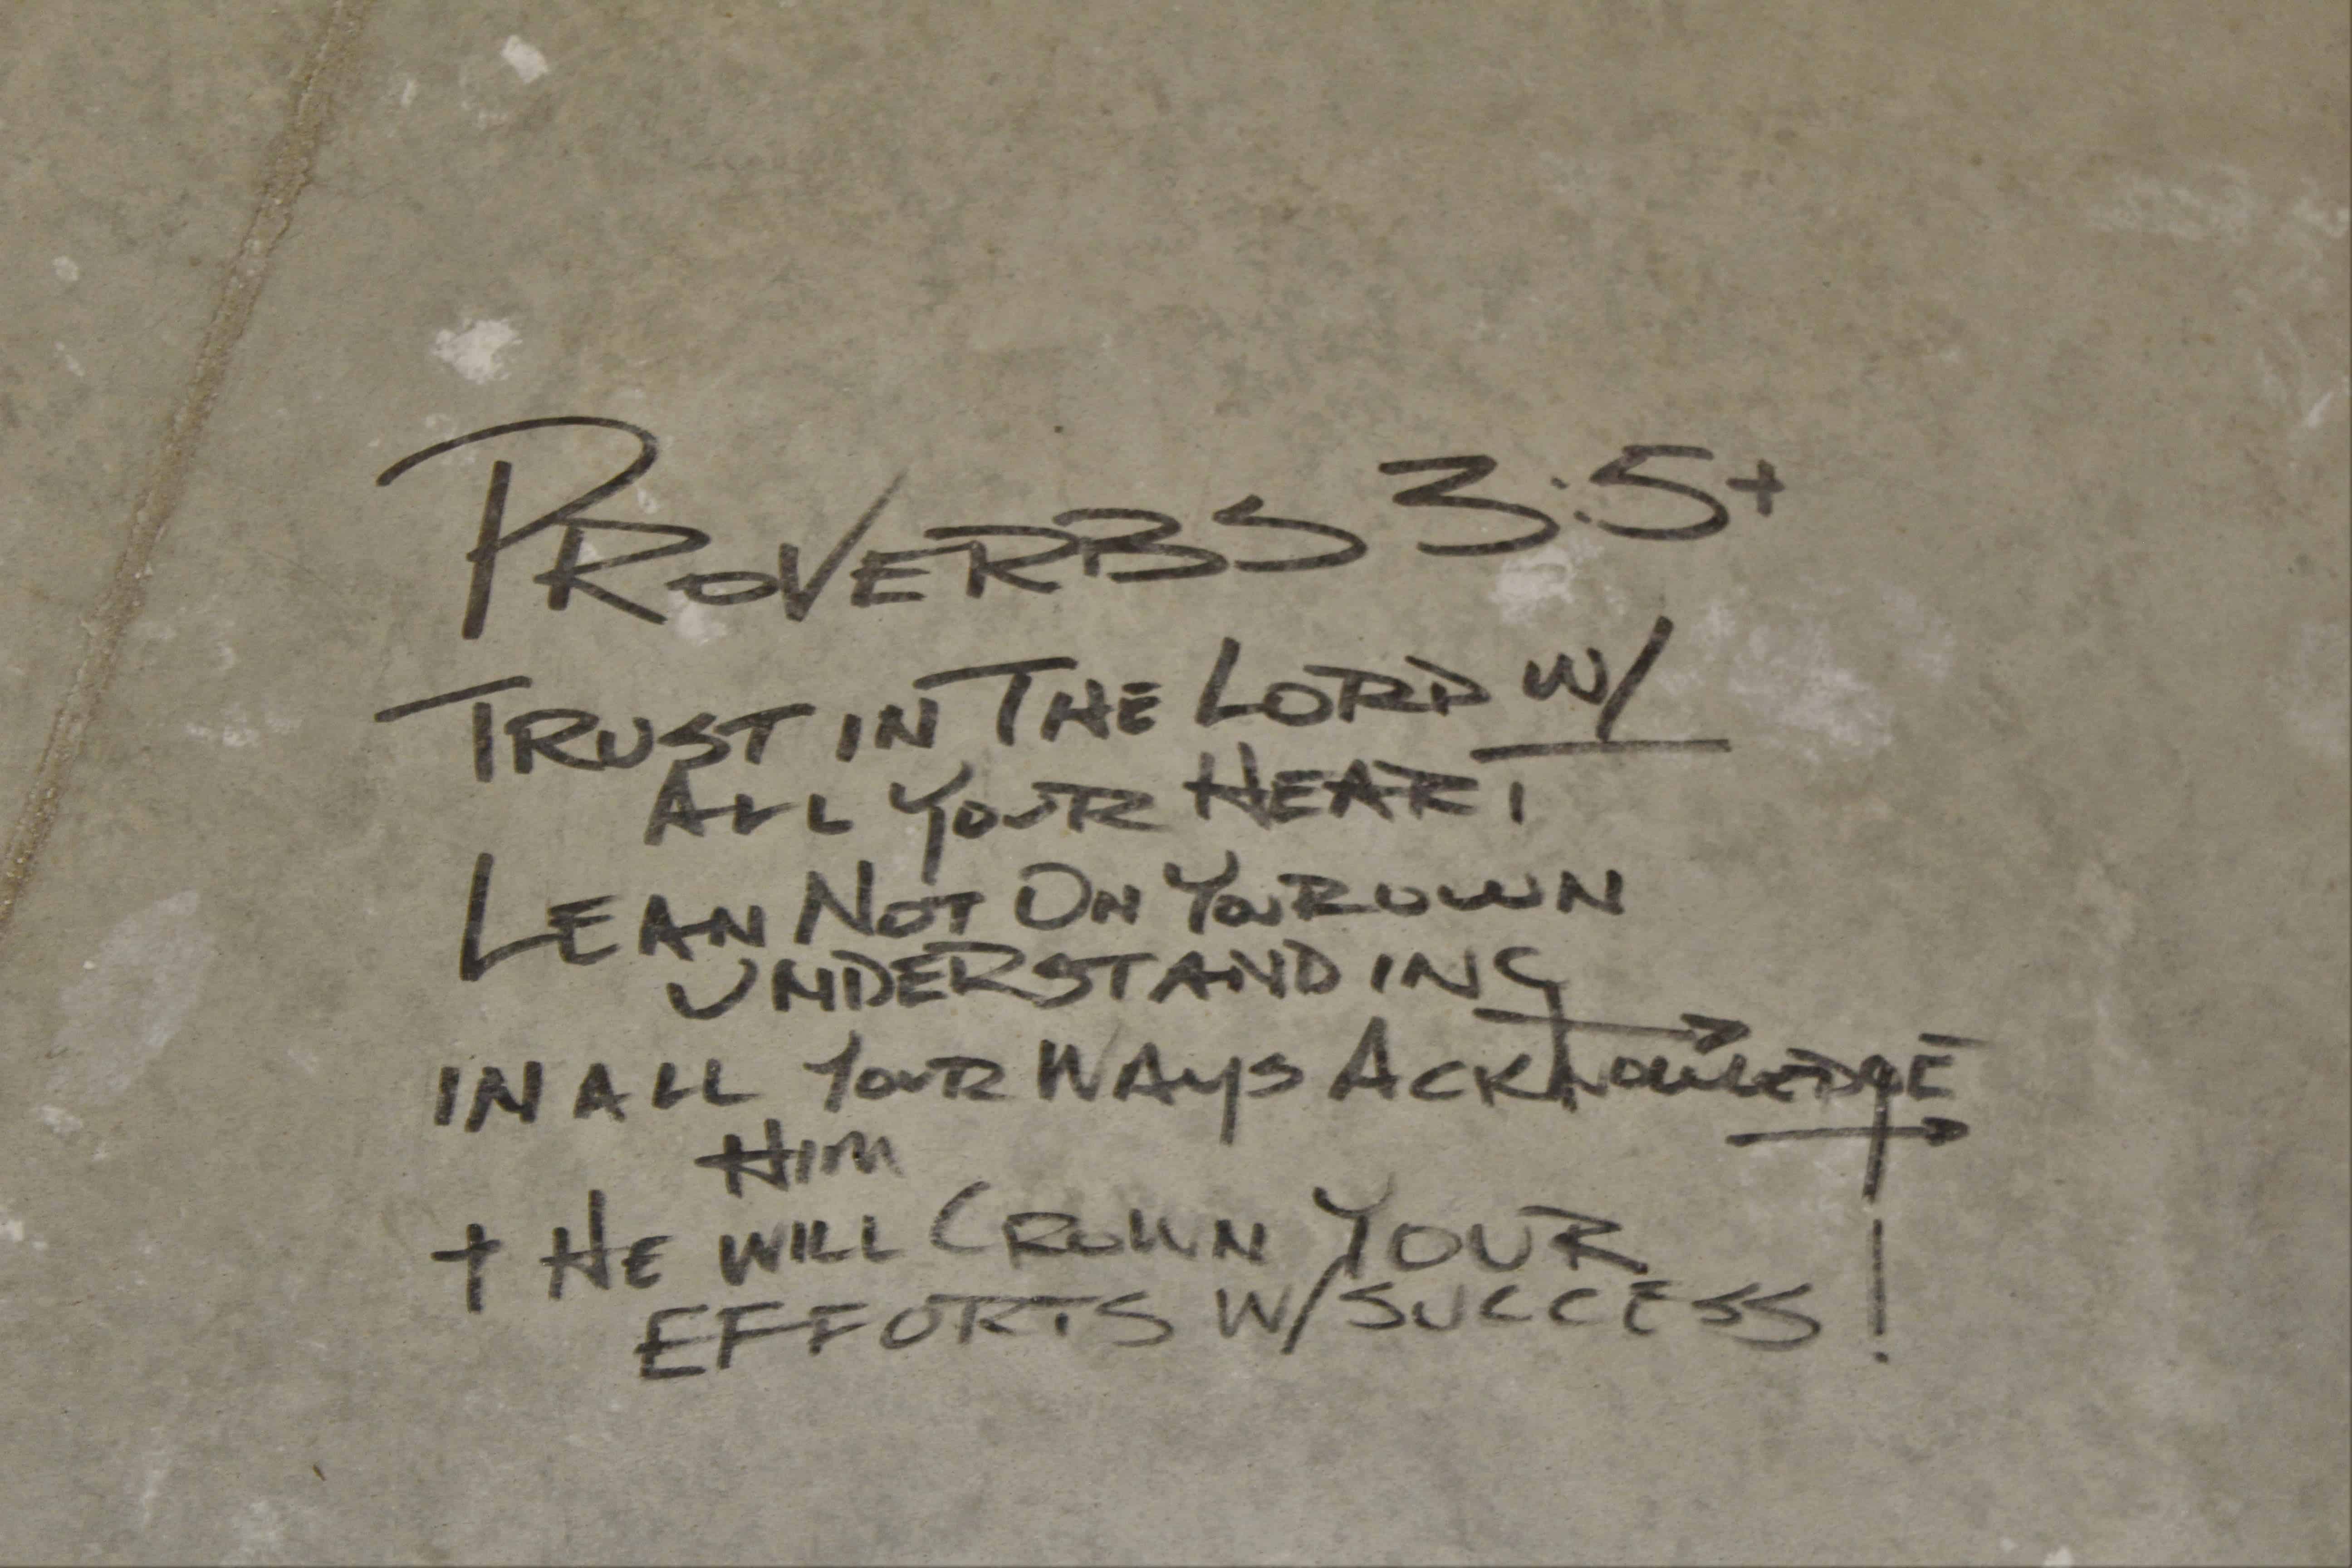 PROVERBS 3:5+
TRUST IN THE LORD W/
ALL YOUR HEART
LEAN NOT ON YOUR OWN
UNDERSTANDING
IN ALL YOUR WAYS ACKNOWLEDGE
HIM
+ HE WILL CROWN YOUR
EFFORTS W/SUCCESS!